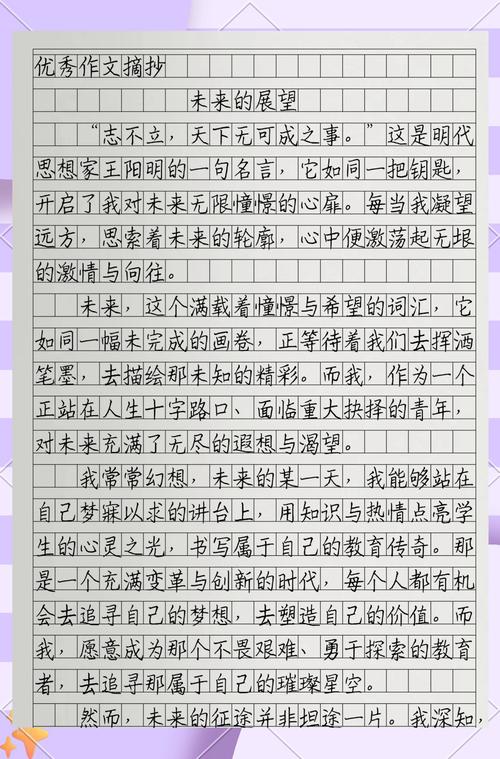 优秀作文摘抄
未来的展望
“志不立，天下无可成之事。”这是明代
思想家王阳明的一句名言，它如同一把钥匙，
开启了我对未来无限憧憬的心扉。每当我凝望
远方，思索着未来的轮廓，心中便激荡起无垠
的激情与向往。
未来，这个满载着憧憬与希望的词汇，它
如同一幅未完成的画卷，正等待着我们去挥洒
笔墨，去描绘那未知的精彩。而我，作为一个
正站在人生十字路口、面临重大抉择的青年，
对未来充满了无尽的遐想与渴望。
我常常幻想，未来的某一天，我能够站在
自己梦寐以求的讲台上，用知识与热情点亮学
生的心灵之光，书写属于自己的教育传奇。那
是一个充满变革与创新的时代，每个人都有机
会去追寻自己的梦想，去塑造自己的价值。而
我，愿意成为那个不畏艰难、勇于探索的教育
者，去追寻那属于自己的璀璨星空。
然而，未来的征途并非坦途一片。我深知，